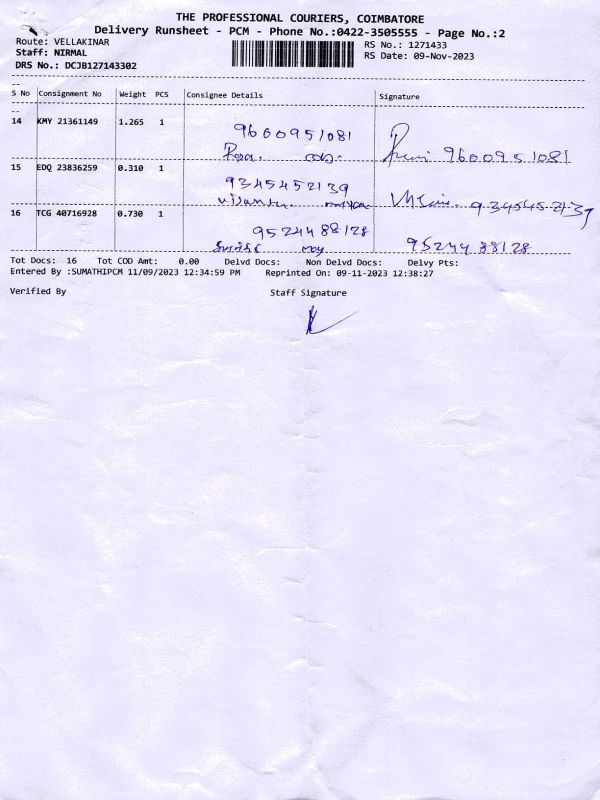 THE PROFESSIONAL COURIERS, COIMBATORE
Delivery Runsheet - PCM - Phone No.:0422-3505555 - Page No.:2
Route: VELLAKINAR
RS No.: 1271433
Staff: NIRMAL
RS Date: 09-Nov-2023
DRS No.: DCJB127143302
S No Consignment No Weight PCS Consignee Details Signature
14 KMY 21361149 1.265 1
9600951081
9600951081
15 EDQ 23836259 0.310 1
9345452139
9345452139
16 TCG 40716928 0.730 1
9524488128
9524488128
Tot Docs: 16 Tot COD Amt: 0.00 Delvd Docs: Non Delvd Docs: Delvy Pts:
Entered By :SUMATHIPCM 11/09/2023 12:34:59 PM Reprinted On: 09-11-2023 12:38:27
Verified By Staff Signature